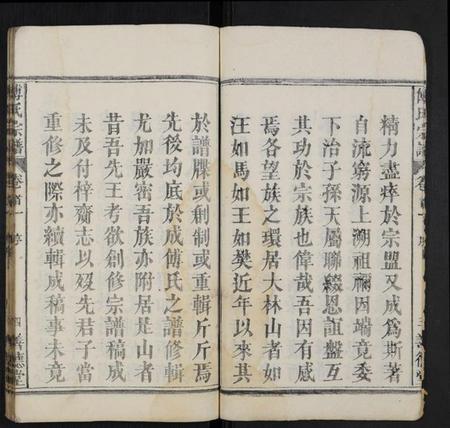 精力盡瘁於宗盟又成爲斯著
自流窮源上溯祖禰因端竟委
下治子孫天屬聯綴恩誼盤互
其功於宗族也偉哉吾因有感
焉各望族之環居大林山者如
汪如馬如王如樊近年以來其
於譜牒或創制或重輯斤斤焉
先後均底於成傅氏之譜修輯
尤加嚴密吾族亦附居是山者
昔吾先王考欲創修宗譜稿成
未及付梓齋志以歿先君子當
重修之際亦續輯成稿事未竟
傅氏宗譜
卷首一
四
善德堂